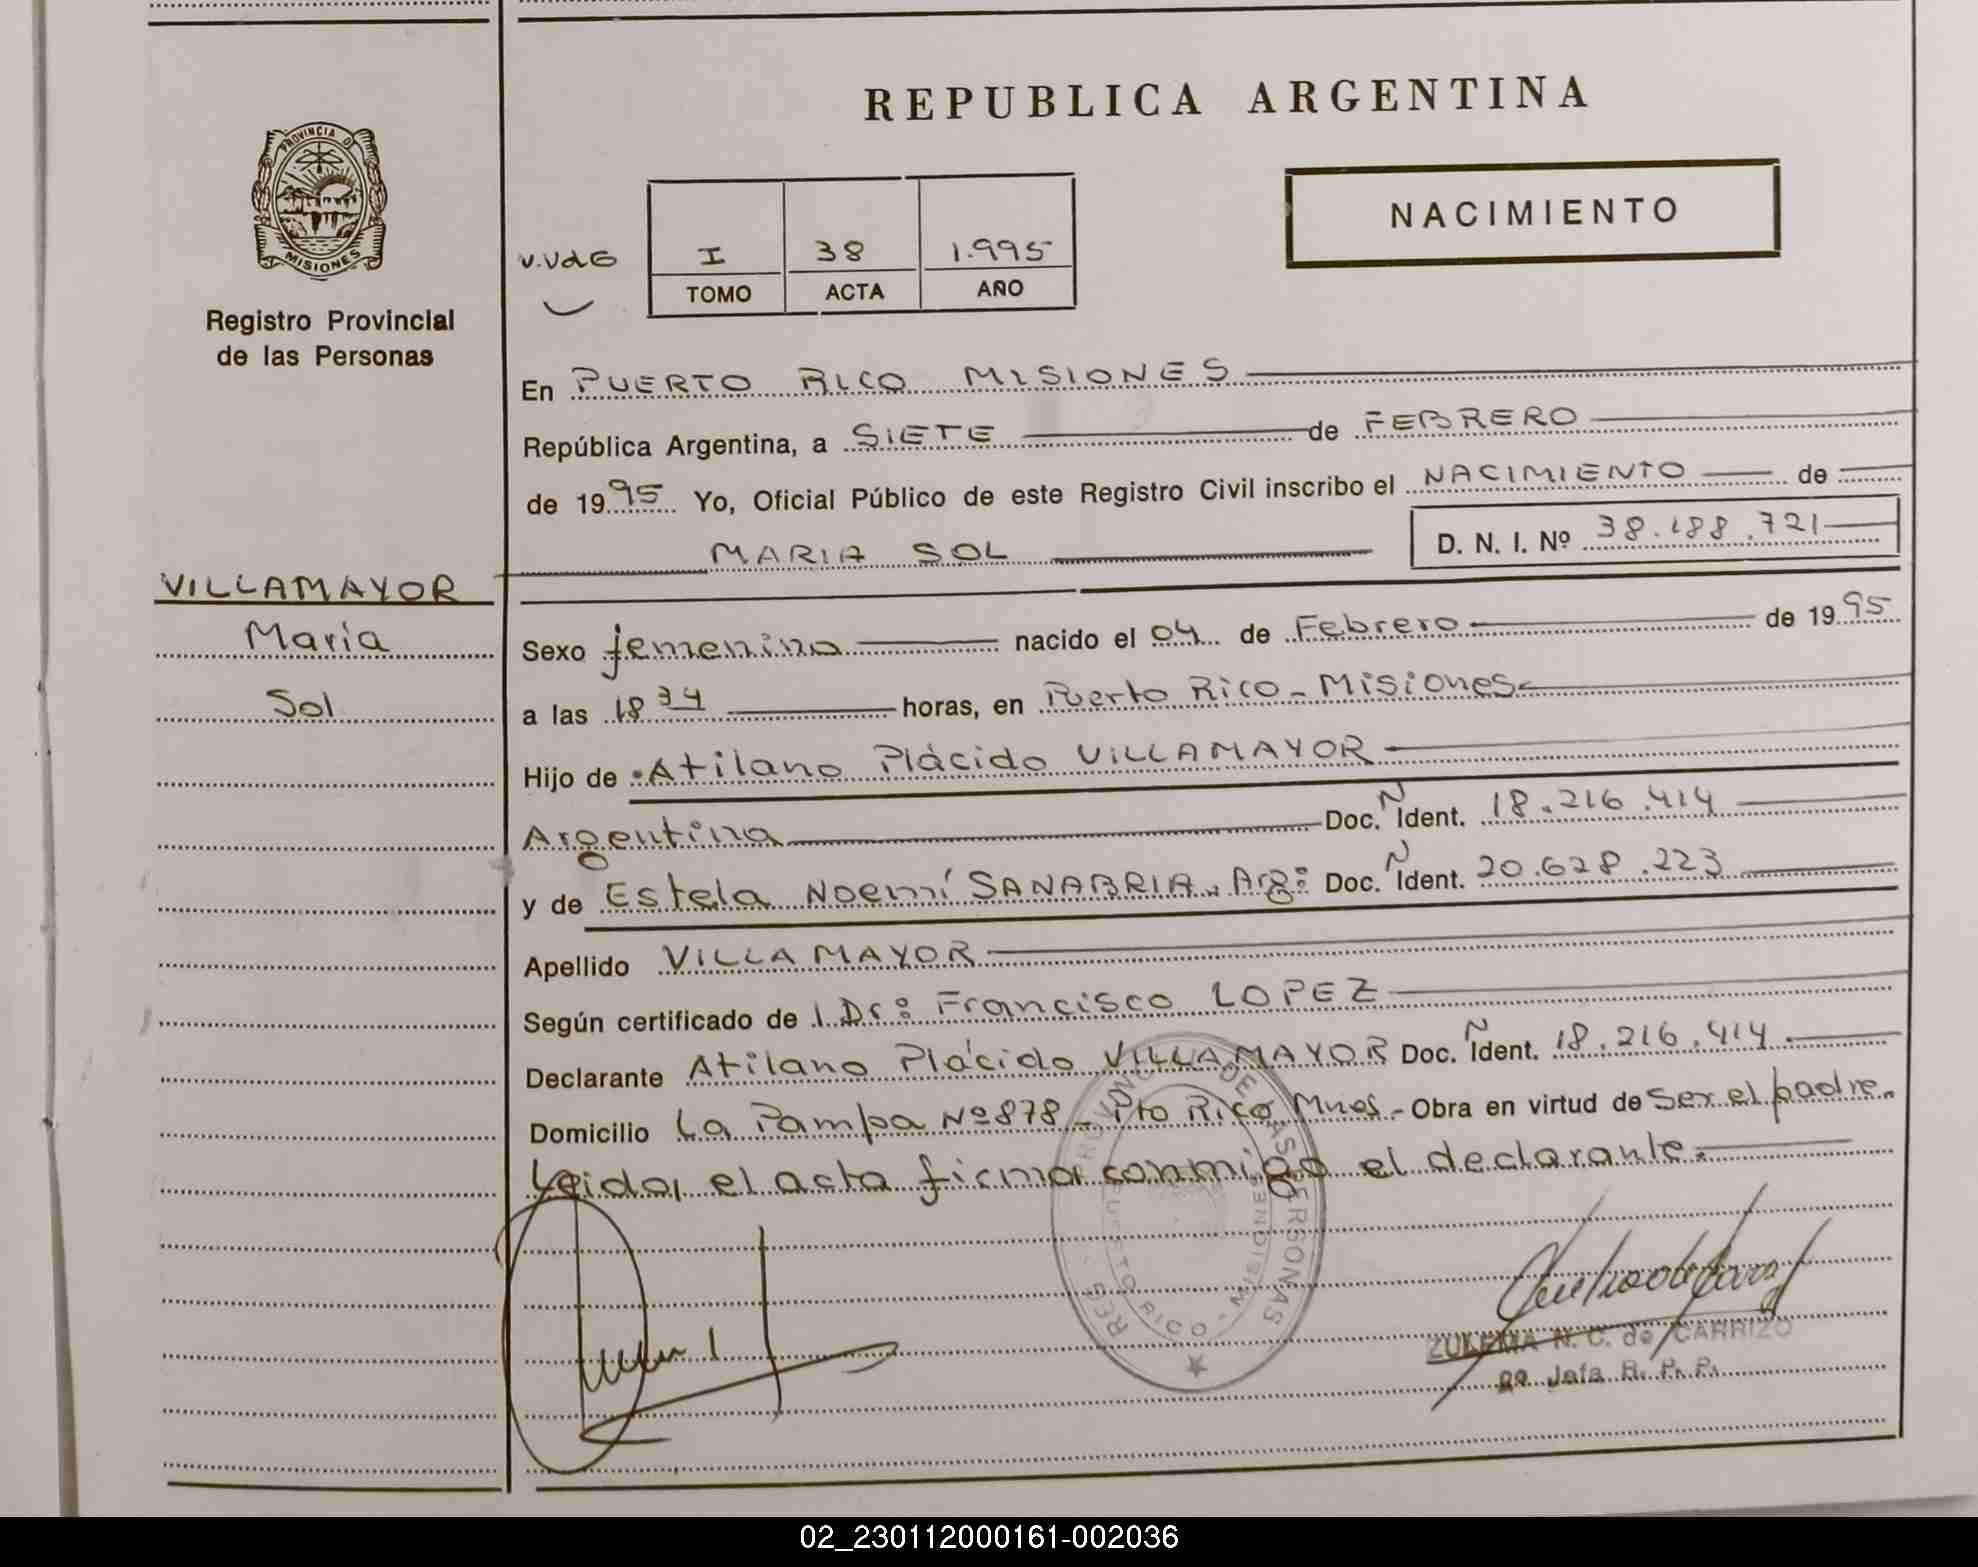 REPUBLICA ARGENTINA
PROVINCIA D
MISIONES
Registro Provincial
de las Personas
NACIMIENTO
V.VdG
I 38 1.995
TOMO ACTA AÑO
En PUERTO RICO MISIONES
República Argentina, a SIETE de FEBRERO
de 1995 Yo, Oficial Público de este Registro Civil inscribo el NACIMIENTO de
MARIA SOL D. N. I. Nº 38.188.721
VILLAMAYOR
Maria
Sol
Sexo femenino nacido el 04 de Febrero de 1995
a las 18 34 horas, en Puerto Rico - Misiones
Hijo de Atilano Plácido VILLAMAYOR
Argentina Doc. Ñ Ident. 18.216.414
y de Estela Noemí SANABRIA. Arg: Doc. Ñ Ident. 20.628.223
Apellido VILLAMAYOR
Según certificado de l Dr: Francisco LOPEZ
Declarante Atilano Plácido VILLAMAYOR Doc. Ñ Ident. 18.216.414
Domicilio La Pampa Nº 878 - Pto Rico Mnes. - Obra en virtud de ser el padre.
Leida, el acta firma conmigo el declarante.
DE LAS PERSONAS
PUERTO RICO - MISIONES
ZULEMA N. C. de CARRIZO
Jefa R. P. P.
02_230112000161-002036